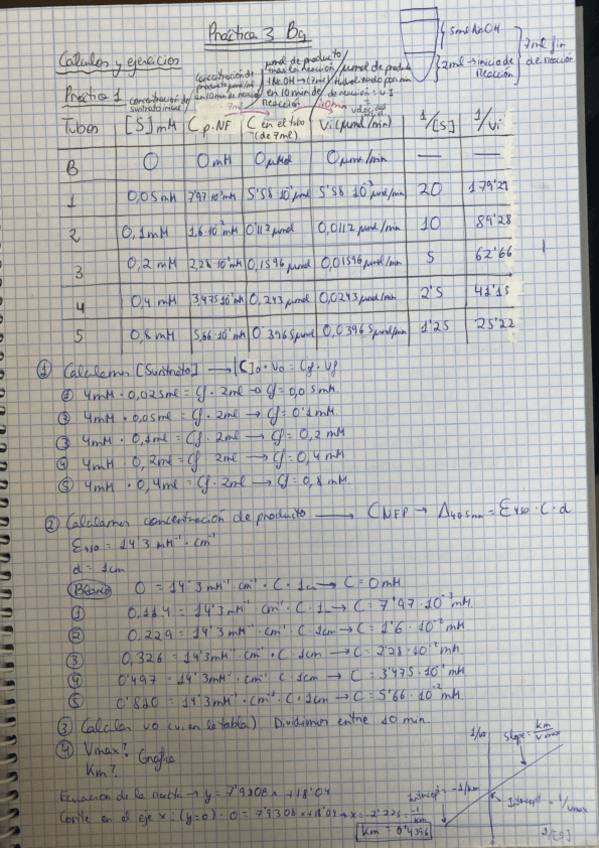 Práctica 3 Bq
Cálculos y ejercicios
Práctica 1
5ml NaOH
2ml → inicio de reacción
7ml fin de reacción
concentración de sustrato inicial
concentración de producto
en 10 min de reacción
μmol de producto
en 10 min de reacción
7ml
10min
Tubos [S] mM C p.NF C en el tubo (de 7ml) Vi (μmol/min) 1/[S] 1/Vi
B 0 0 mM 0 μmol 0 μmol/min — —
1 0,05 mM 7'97·10⁻³ mM 5'58·10⁻² μmol 5'58·10⁻³ μmol/min 20 179'21
2 0,1 mM 1,6·10⁻² mM 0'112 μmol 0,0112 μmol/min 10 89'28
3 0,2 mM 2,28·10⁻² mM 0,1596 μmol 0,01596 μmol/min 5 62'66
4 0,4 mM 3,475·10⁻² mM 0,243 μmol 0,0243 μmol/min 2'5 41'15
5 0,8 mM 5,66·10⁻² mM 0'3965 μmol 0,03965 μmol/min 1'25 25'22
① Calculamos [Sustrato] → [C]₀ · V₀ = Cf · Vf
① 4mM · 0,025ml = Cf · 2ml → Cf = 0,05mM
② 4mM · 0,05ml = Cf · 2ml → Cf = 0'1mM.
③ 4mM · 0,1ml = Cf · 2ml → Cf = 0,2 mM
④ 4mM · 0,2ml = Cf 2ml → Cf = 0,4 mM
⑤ 4mM · 0,4ml = Cf · 2ml → Cf = 0,8 mM.
② Calculamos concentración de producto → CNFP → A₄₀₅nm = ε₄₅₀ · C · d
ε₄₅₀ = 14'3 mM⁻¹ · cm⁻¹
d = 1cm
Blanco 0 = 14'3 mM⁻¹ · cm⁻¹ · C · 1cm → C = 0mM
① 0,114 = 14'3mM⁻¹ · cm⁻¹ · C · 1cm → C = 7'97 · 10⁻³ mM.
② 0,229 = 14'3mM⁻¹ · cm⁻¹ · C · 1cm → C = 1'6 · 10⁻² mM
③ 0,326 = 14'3mM⁻¹ cm⁻¹ · C · 1cm → C = 2'28 · 10⁻² mM
④ 0'497 = 14'3mM⁻¹ · cm⁻¹ C · 1cm → C = 3'475 · 10⁻² mM
⑤ 0'810 = 14'3mM⁻¹ · cm⁻¹ · C · 1cm → C = 5'66 · 10⁻² mM.
③ Calcular vo (vi en la tabla). Dividimos entre 10 min.
④ Vmax?
Km?
Gráfica
Ecuación de la recta → y = 7'9308x + 18'04
Corte en el eje x: (y=0) · 0 = 7'9308x + 18'04 → x = -2'275 = -1/km
Km = 0'4396
1/vo
Slope = km/Vmax
Intercept = -1/km
Intercept = 1/Vmax
1/[S]